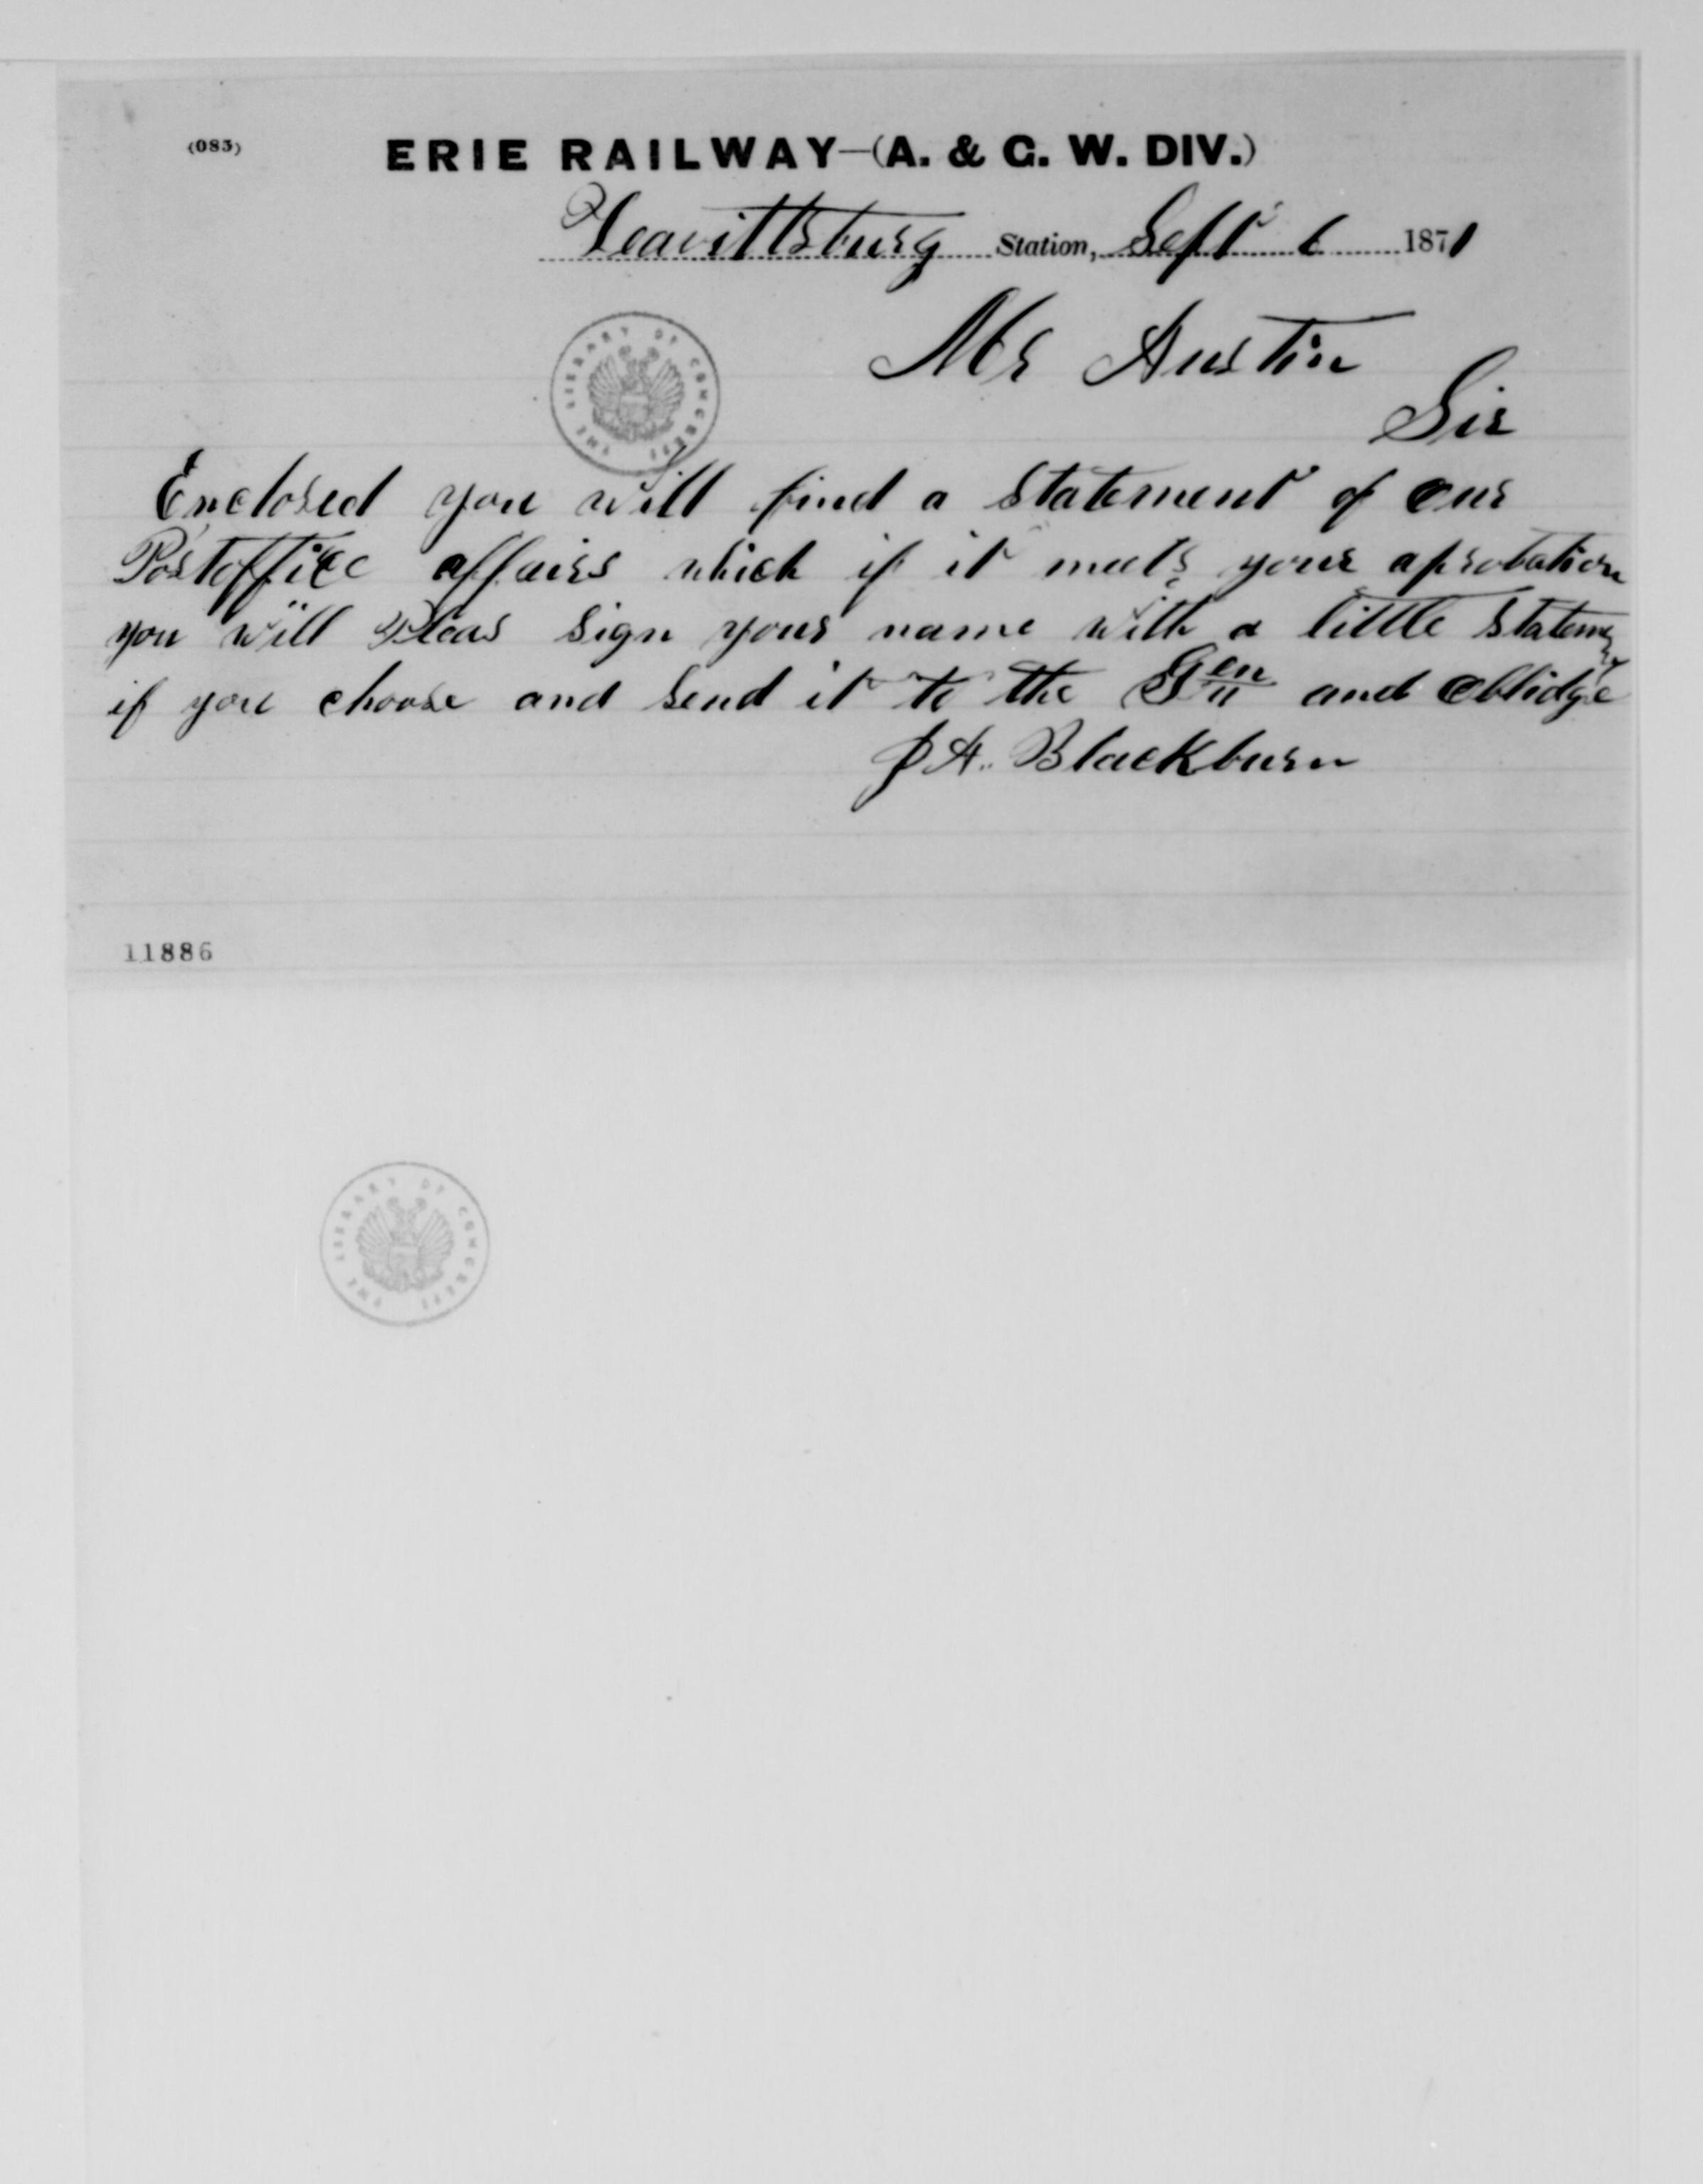 (083)
ERIE RAILWAY—(A. & G. W. DIV.)
Leavittsburg Station, Sept 6 1871
Mr Austin
Sir
THE LIBRARY OF CONGRESS
Enclosed you will find a statement of our
Postoffice affairs which if it meets your aprobation
you will Pleas sign your name with a little statement
if you choose and send it to the Gen and Oblidge
J A. Blackburn
11886
THE LIBRARY OF CONGRESS